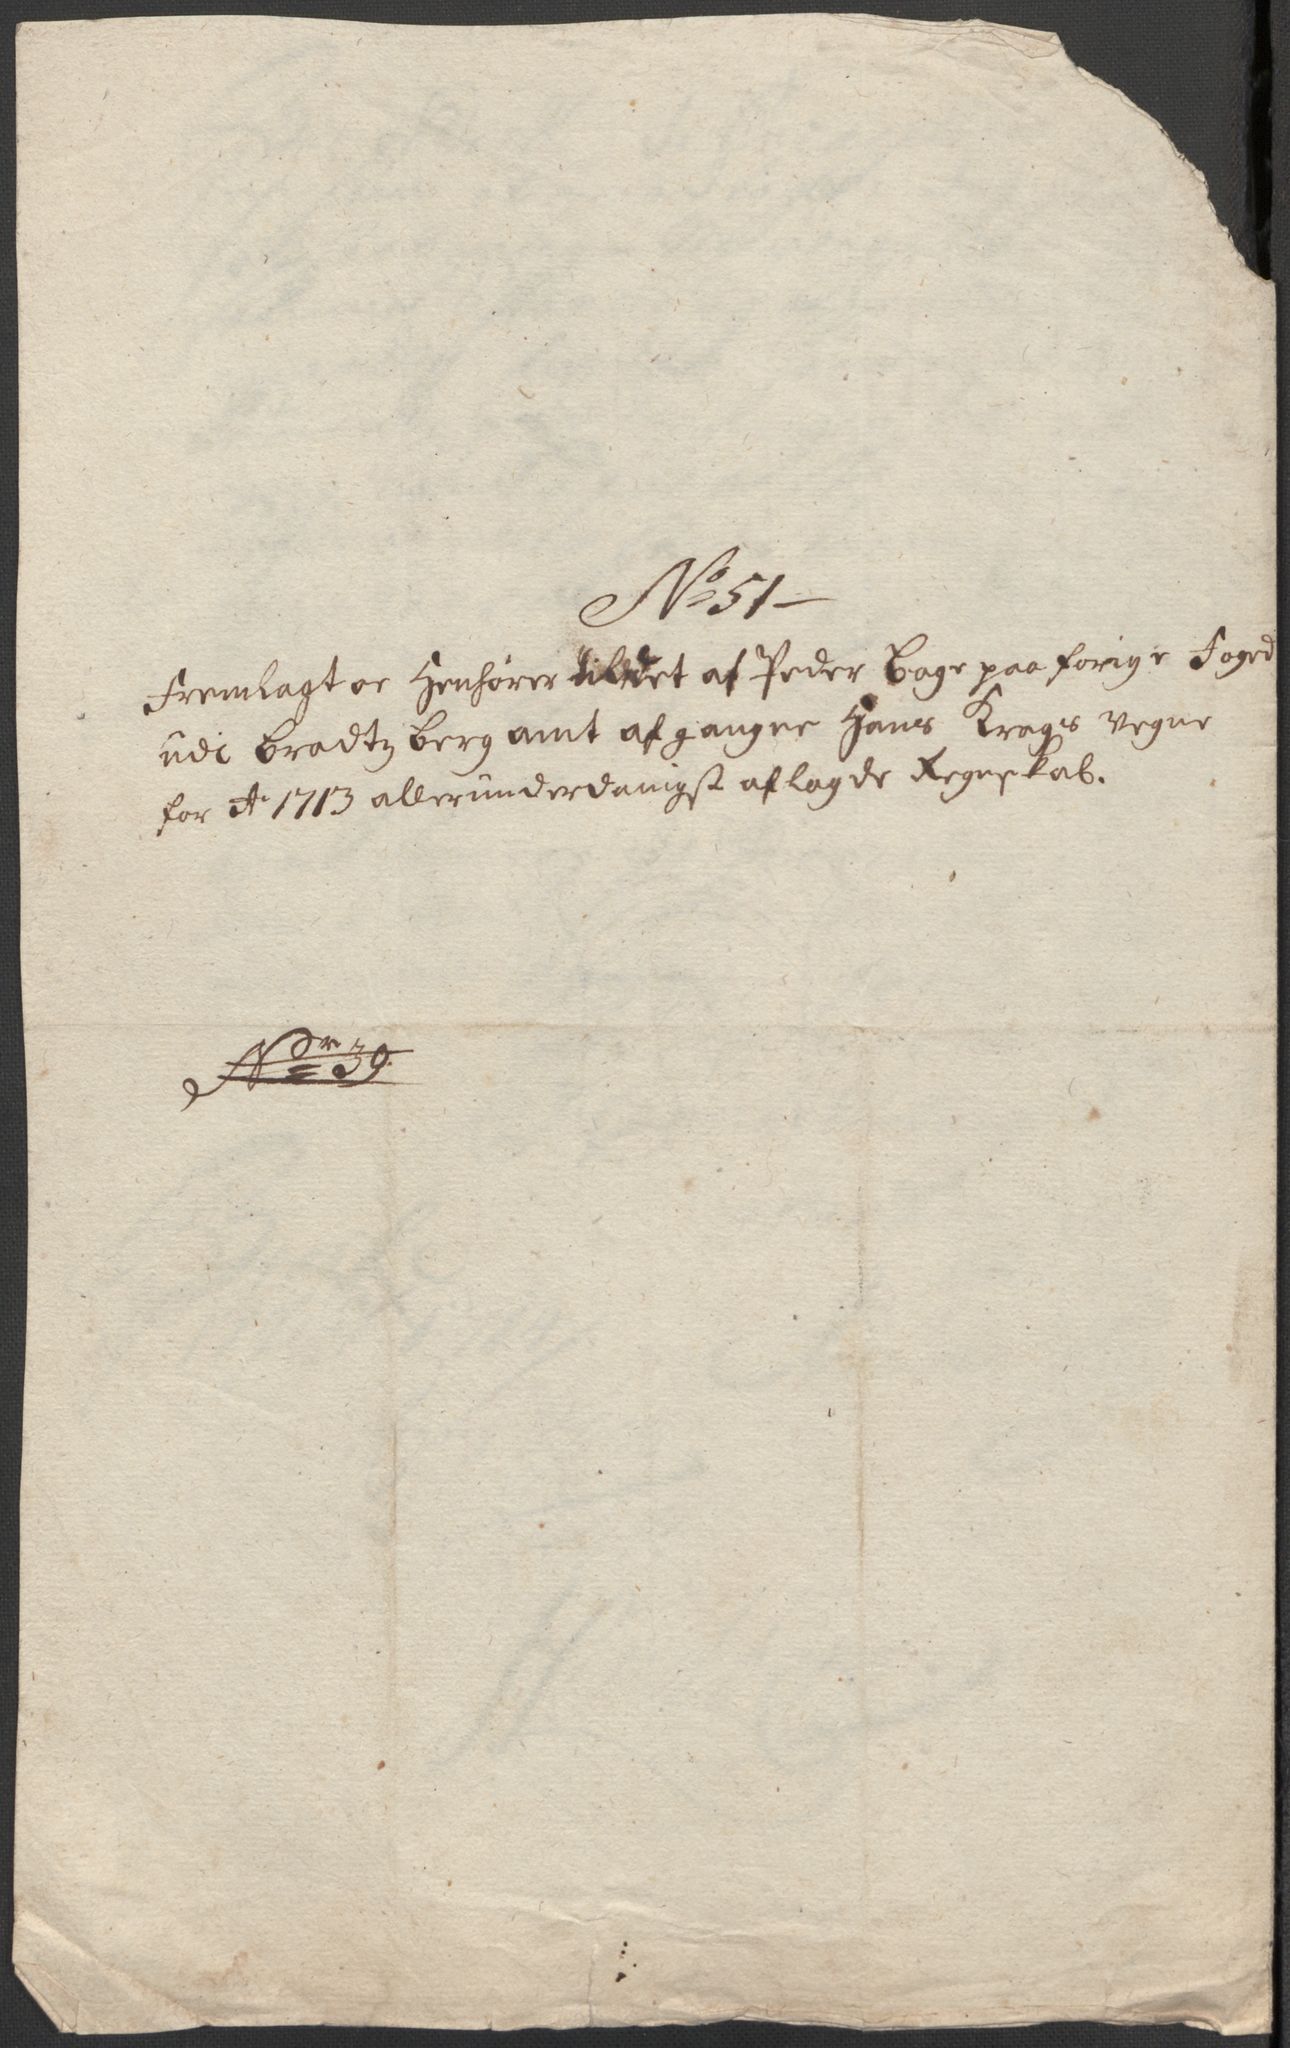 No 51
Fremlagt oc Henhører till det af Peder Bage paa forige Foged
udi Bradtzberg amt afgangne Hans Krags vegne
for Ao 1713 allerunderdanigst aflagde Regnskab.
Nr 39